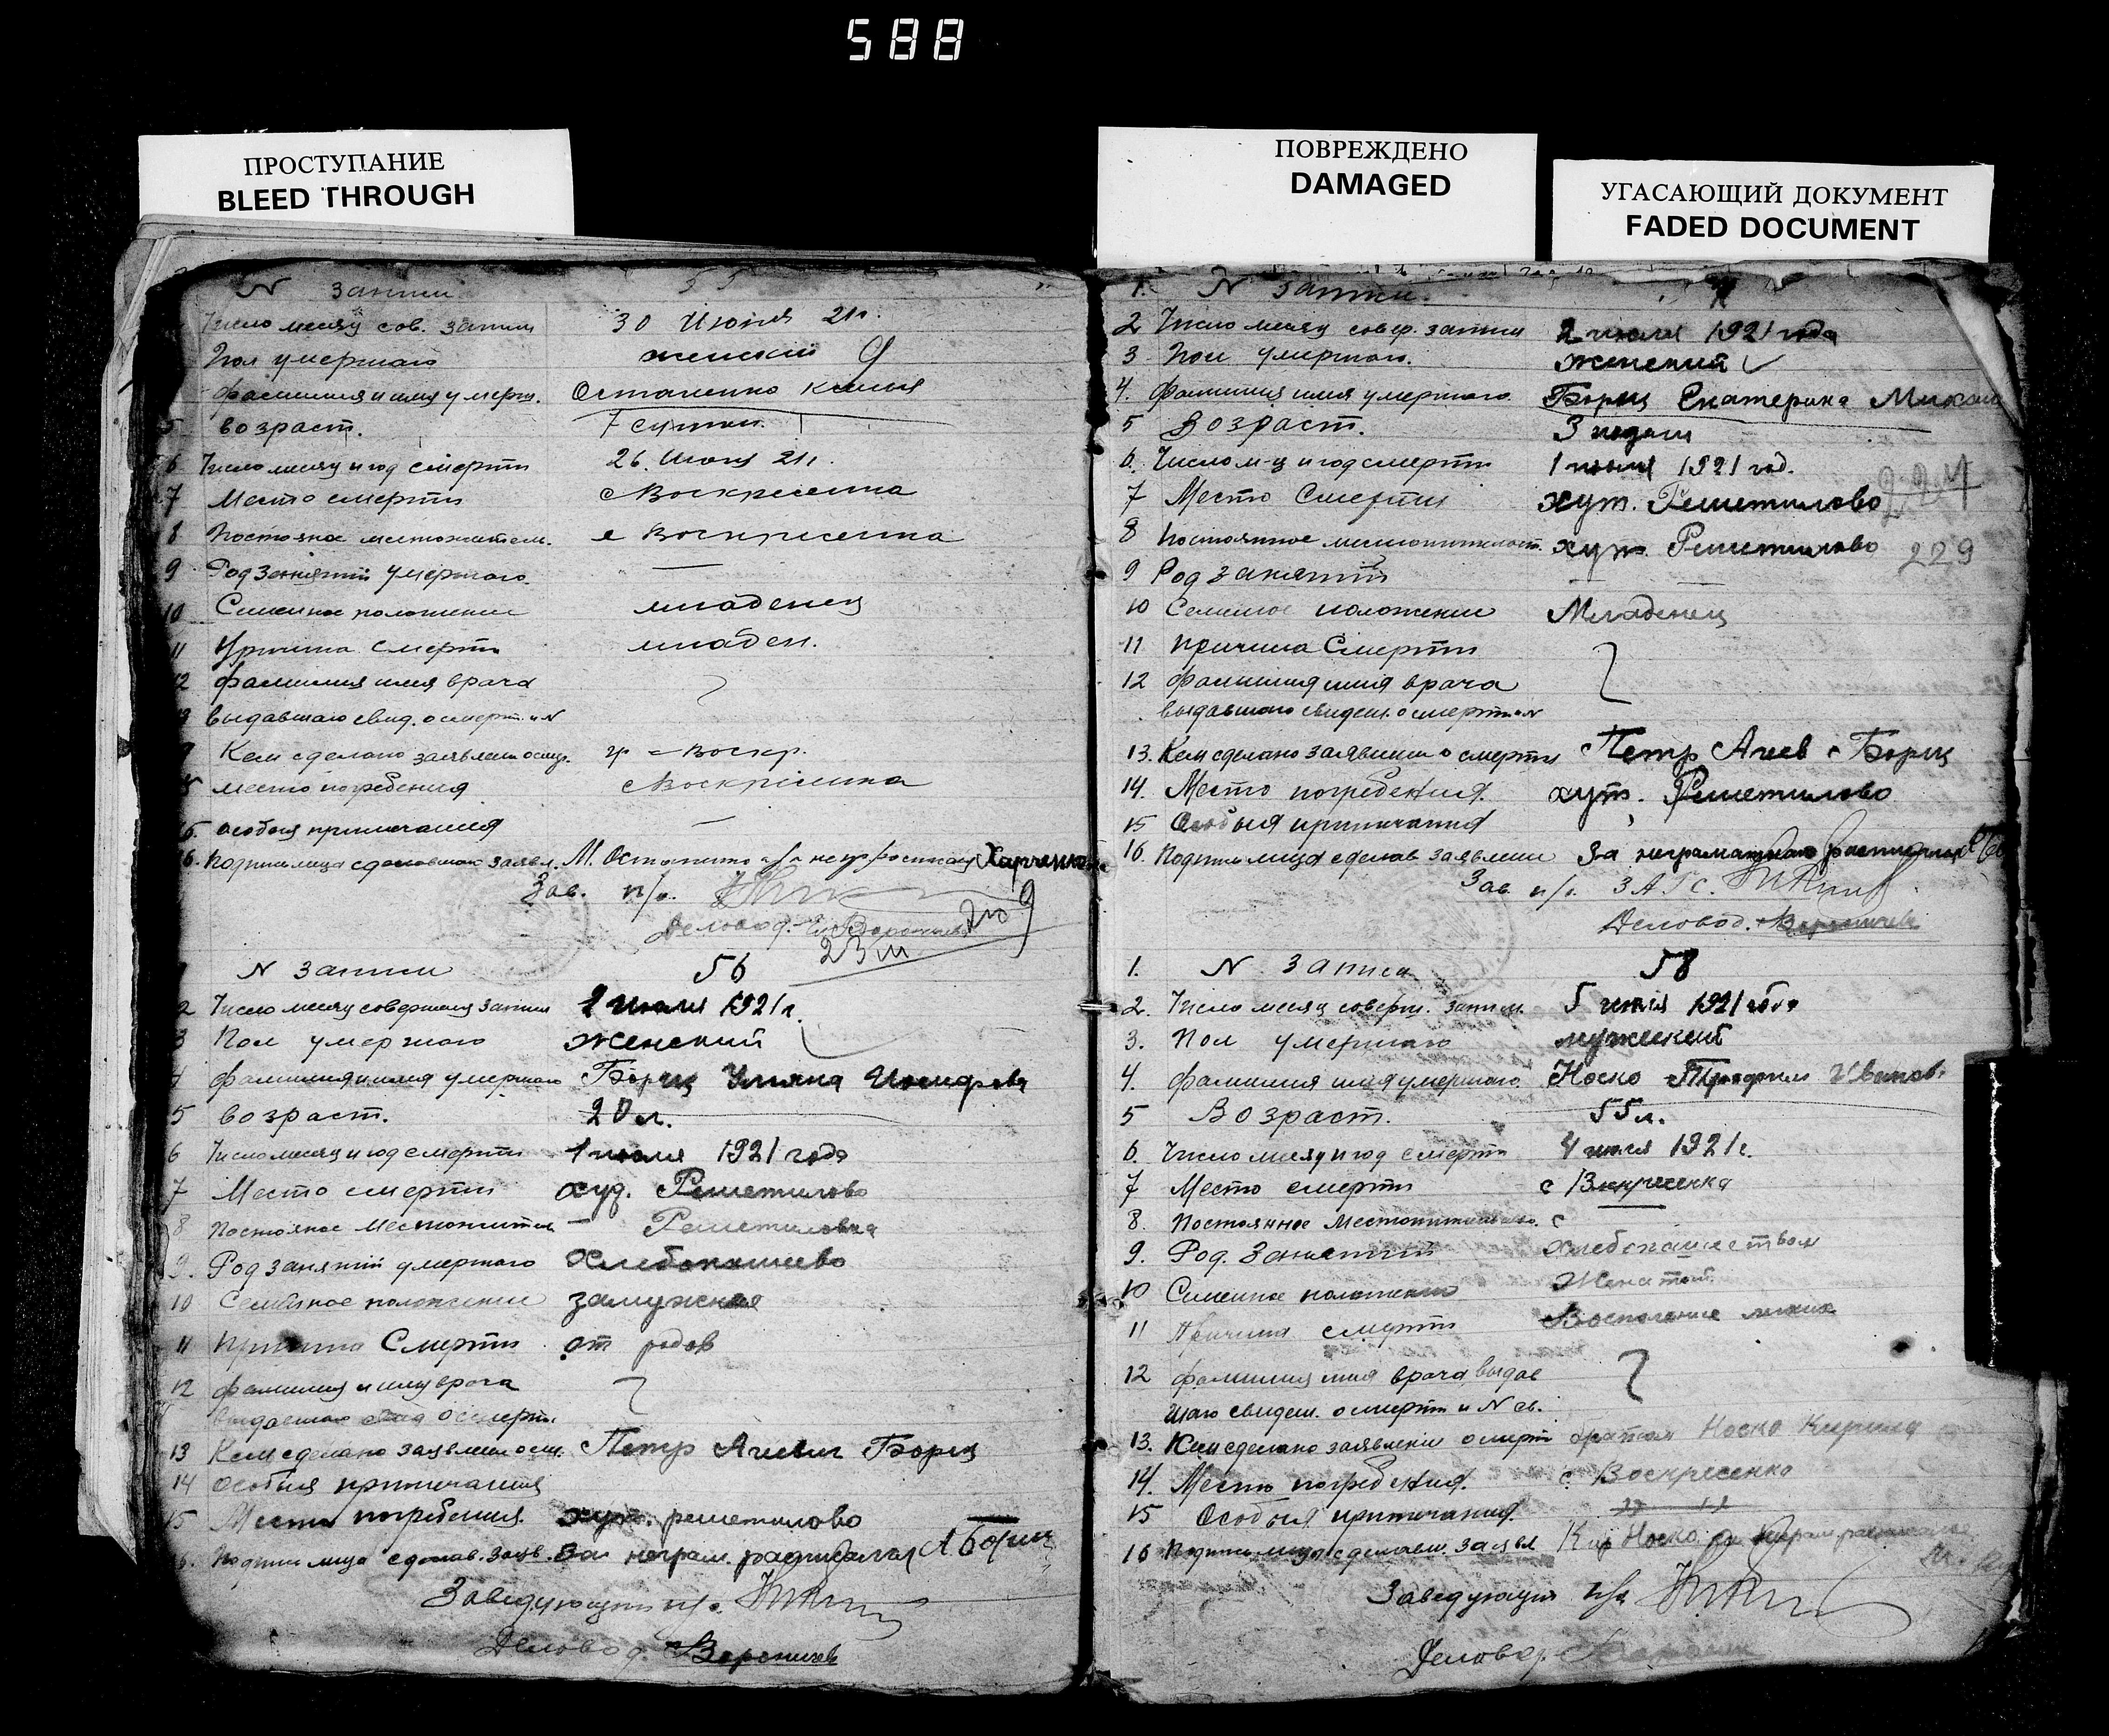 588
ПРОСТУПАНИЕ
BLEED THROUGH
ПОВРЕЖДЕНО
DAMAGED
УГАСАЮЩИЙ ДОКУМЕНТ
FADED DOCUMENT
N записи 55
Число месяц сов. записи 30 Июня 21г.
Пол умершаго женский
фамилия и имя умерш. Остапенко
5 возраст. 7 сутки
6 Число месяц и год смерти 26. Июня 21г.
7 Место смерти с Воскресенка
8 Постояное местожител. с Воскресенка
9 Род занятий умершаго —
10 Семейное положение младенец
11 Причина смерти младен.
12 фамилия имя врача
выдавшаго свид. о смерт. и N
Кем сделано заявлен о смер. гр с Воскр.
место погребения с Воскресенка
15. особыя примечания —
16. Подпись лица сделавшаго заявл. М. Остапенко Харченко
Зав. п/о.
Деловод.
23 ш
1 N записи 56
2 Число месяц совершения записи 2 июля 1921 г.
3 Пол умершаго Женский
4 фамилия и имя умершаго Борщ Ульяна Иосифовна
5 возраст. 20 л.
6 Число месяц и год смерти 1 июля 1921 года
7 Место смерти худ. Решетилово
8 Постояное местожител — Решетиловка
9. Род занятий умершаго Хлебопашево
10 Семейное положение замужняя
11 Причина Смерти от родов
12 фамилия и имя врача
выдавшаго свид о смерти.
13 Кем сделано заявлен о см. Петр Агиевич Борщ
14 особыя примечания
15 Место погребения. хут. решетилово
16. Подпись лица сделав. заяв. за неграм. расписался А Борщ
Заведующий п/о.
Деловод. Вороничев
1. N записи.
2 Число месяц совер. записи 2 июля 1921 года
3 Пол умершаго. Женский
4. фамилия имя умершаго Борщ Екатерина Михаил
5 Возраст. 3 недели
6. Число м-ц и год смерти 1 июля 1921 год.
7 Место Смерти хут. Решетилово
8 Постоянное местожительст. хут. Решетилово 229
9 Род занятий — —
10 Семейное положение Младенец
11 Причина Смерти
12 Фамилия имя врача
выдавшаго свидет. о смерти и N
13. Кем сделано заявление о смерти Петр Агиев Борщ
14. Место погребения. хут. Решетилово
15 Особыя примечания
16. Подпись лица сделав заявлении За неграмотнаго расписался
Зав п/о. ЗАГС.
Деловод. Вороничев
1. N. записи 58
2. Число месяц соверш. записи 5 июля 1921 года
3. Пол умершаго мужский
4. фамилия имя умершаго Носко Трофим Иванов.
5 Возраст. 55 л.
6. Число месяц и год смерти 4 июля 1921 г.
7 Место смерти с Воскресенка
8. Постоянное Местожительство. с
9. Род. занятий хлебопашеством
10 Семейное положение Женатый
11 Причина смерти Воспаление легких
12 фамилия имя врача выдав
шаго свидет. о смерти и N св.
13. Кем сделано заявление о смерт братом Носко Кирилл
14. Место погребения. с Воскресенка
15 Особыя примечания.
16 Подпись лица сделавш. заявл Кир Носко
Заведующий п/о
Деловод.